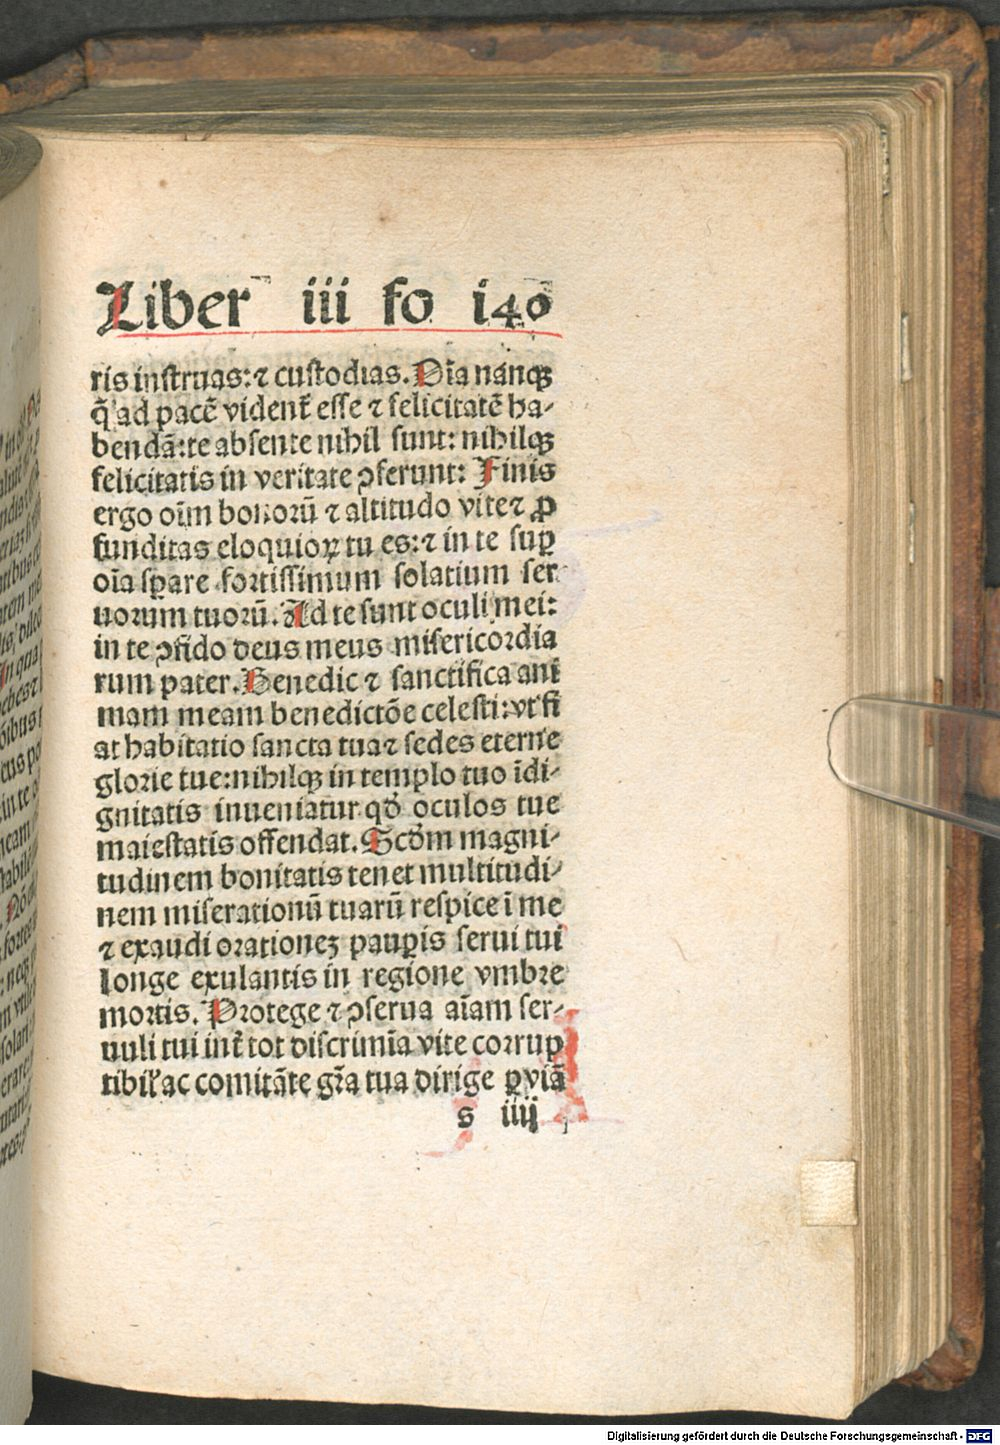 Liber iii fo 140
ris instruas: ⁊ custodias. Oīa nanqꝫ
q̄ ad pacē vident̄ esse ⁊ felicitatē ha-
bendā: te absente nihil sunt: nihilqꝫ
felicitatis in veritate ꝯferunt: Finis
ergo oīm bonorū ⁊ altitudo vite ⁊ ꝓ
funditas eloquioꝝ tu es: ⁊ in te suꝑ
oīa sꝑare fortissimum solatium ser
uorum tuorū. Ad te sunt oculi mei:
in te ꝯfido deus meus misericordia
rum pater. Benedic ⁊ sanctifica ani
mam meam benedictōe celesti: vt fi
at habitatio sancta tua ⁊ sedes eterne
glorie tue: nihilqꝫ in templo tuo īdi-
gnitatis inueniatur qđ oculos tue
maiestatis offendat. Scđm magni-
tudinem bonitatis tene ⁊ multitudi-
nem miserationū tuarū respice ī me
⁊ exaudi orationeꝫ pauꝑis serui tui
longe exulantis in regione vmbre
mortis. Protege ⁊ ꝯserua aīam ser-
uuli tui int̄ tot discrimīa vite corrup
tibil' ac comitāte gr̄a tua dirige ꝑ viā
s iiij
Digitalisierung gefördert durch die Deutsche Forschungsgemeinschaft - DFG